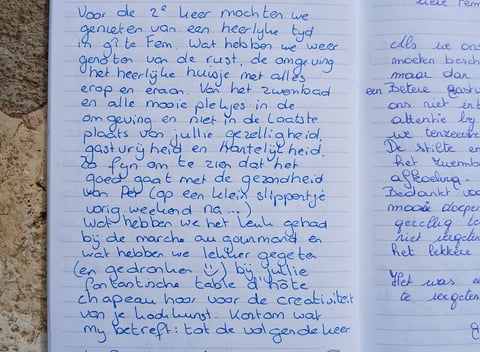 Voor de 2e keer mochten we
genieten van een heerlijke tijd
in gîte Fem. Wat hebben we weer
genoten van de rust, de omgeving
het heerlijke huisje met alles
erop en eraan. Van het zwembad
en alle mooie plekjes in de
omgeving en niet in de laatste
plaats van jullie gezelligheid,
gastvrijheid en hartelijkheid.
Zo fijn om te zien dat het
goed gaat met de gezondheid
van Per (op een klein slippertje
vorig weekend na...)
Wat hebben we het leuk gehad
bij de marche au gourmand en
wat hebben we lekker gegeten
(en gedronken ☺) bij jullie
fantastische table d'hôte
chapeau hoor voor de creativiteit
van je kookkunst. Kortom wat
my betreft: tot de volgende keer
Als we ons
moeten besch
maar dan
een Betere gastv
ons niet
attentie by
we
De stilte en
het zwemb
afkoeling.
Bedankt voo
mooie
gezellig te
niet vergeten
het lekkere
Het was e
te vergeten